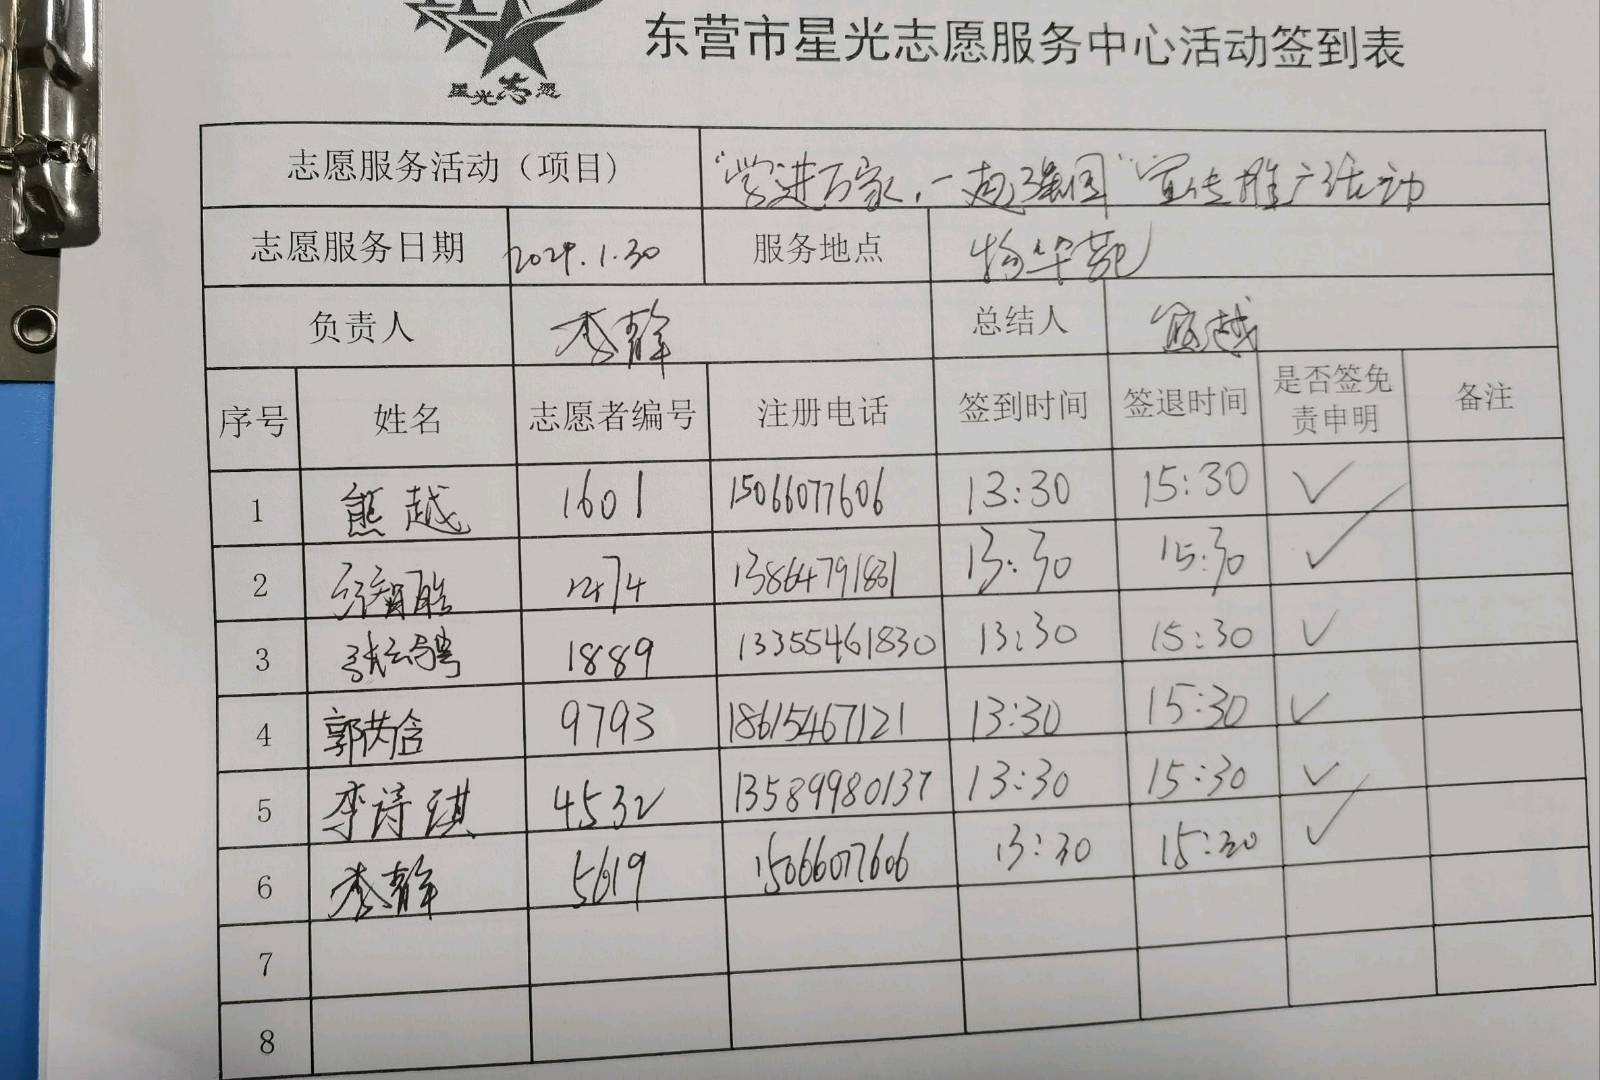 星光志愿
东营市星光志愿服务中心活动签到表
志愿服务活动（项目） “学进万家，一起强国”宣传推广活动
志愿服务日期 2024.1.30 服务地点 物华苑
负责人 李静 总结人 熊越
序号 姓名 志愿者编号 注册电话 签到时间 签退时间 是否签免责申明 备注
1 熊越 1601 15066077606 13:30 15:30 ✓
2 1274 13864791831 13:30 15:30 ✓
3 张云骋 1889 13355461830 13:30 15:30 ✓
4 郭芮含 9793 18615467121 13:30 15:30 ✓
5 李诗琪 4532 13589980137 13:30 15:30 ✓
6 李静 5619 15066077606 13:30 15:30 ✓
7
8